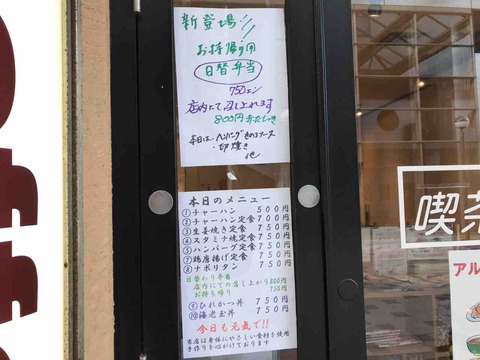 新登場!!
お持帰り用
日替弁当
750エン
店内にて召し上れます
800円
本日は、ハンバーグきのこソース
他
本日のメニュー
① チャーハン 500円
② チャーハン定食 700円
③ 生姜焼き定食 750円
④ スタミナ焼定食 750円
⑤ ハンバーグ定食 750円
⑥ 鶏唐揚げ定食 750円
⑦ ナポリタン 750円
日替わり弁当
店内にての召し上がり 800円
お持ち帰り 750円
⑨ ひれかつ丼 750円
⑩ 海老玉丼 750円
今日も元気で!!
当店は身体にやさしい食材を使用
手作りを心がけております
喫茶
アル